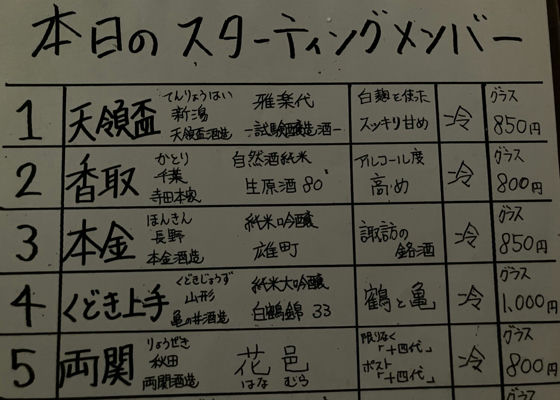 本日のスターティングメンバー
1 天領盃 てんりょうはい 新潟 天領盃酒造 雅楽代 -試験醸造酒- 白麹を使った スッキリ甘め 冷 グラス 850円
2 香取 かとり 千葉 寺田本家 自然酒純米 生原酒 80 アルコール度 高め 冷 グラス 800円
3 本金 ほんきん 長野 本金酒造 純米吟醸 雄町 諏訪の 銘酒 冷 グラス 850円
4 くどき上手 くどきじょうず 山形 亀の井酒造 純米大吟醸 白鶴錦 33 鶴と亀 冷 グラス 1,000円
5 両関 りょうぜき 秋田 両関酒造 花邑 はなむら 限りなく「十四代」 ポスト「十四代」 冷 グラス 800円